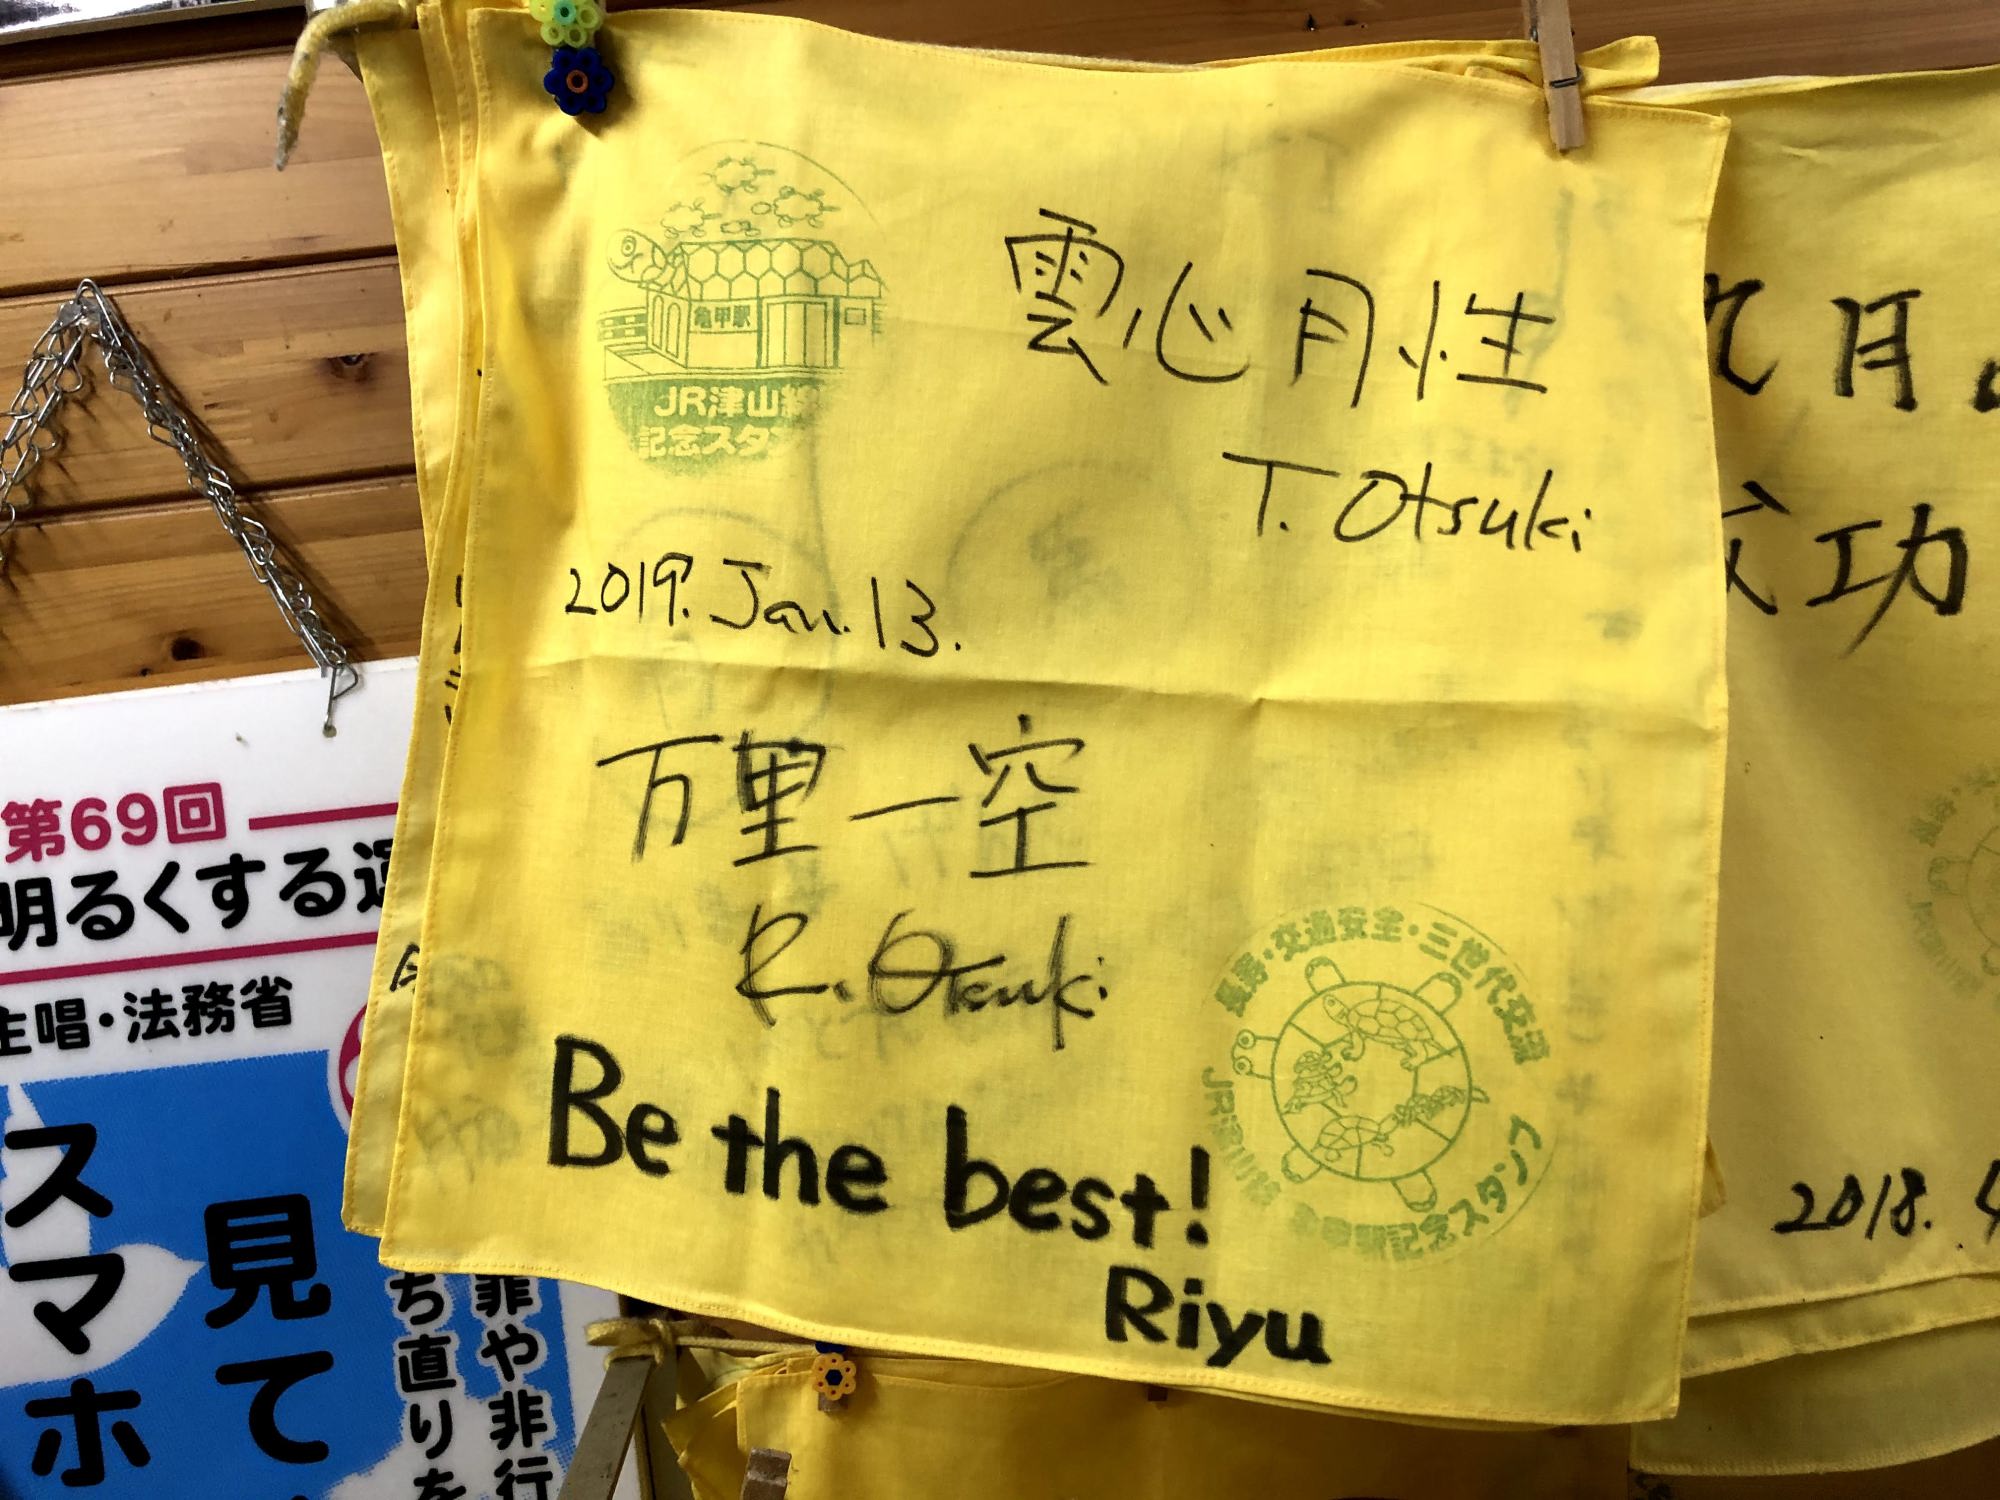 亀甲駅
JR津山線
記念スタン
雲心月性
T. Otsuki
2019. Jan. 13.
万里一空
R. Otsuki
Be the best!
Riyu
長寿・交通安全・三世代交流
JR津山線
亀甲駅記念スタンプ
月
功
2018. 4
第69回
明るくする運
主唱・法務省
スマホ
見て
罪や非行
ち直りを